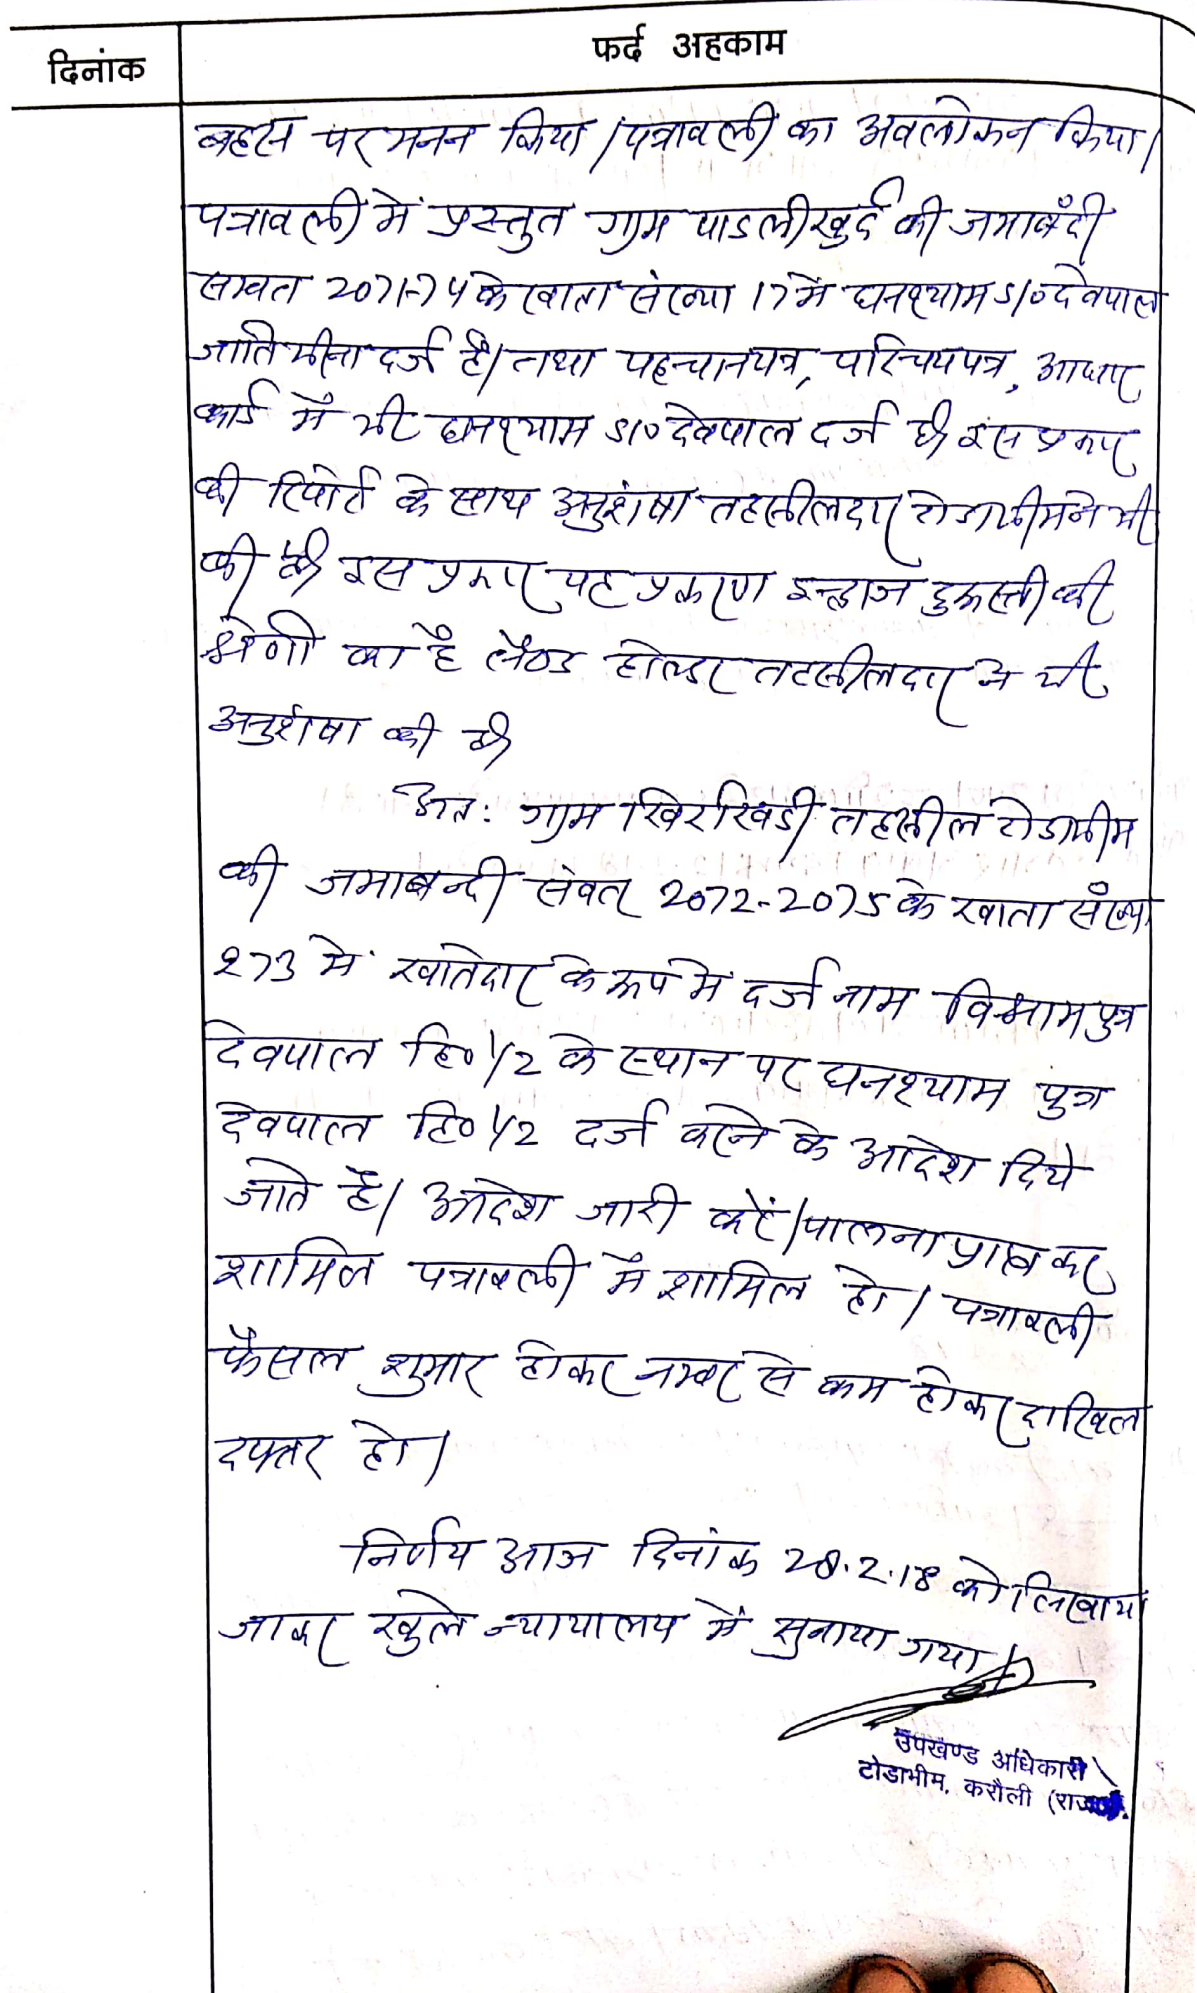 दिनांक
फर्द अहकाम
बहस पर मनन किया। पत्रावली का अवलोकन किया।
पत्रावली में प्रस्तुत ग्राम पाडलीखुर्द की जमाबँदी
सम्वत 2071-74 के खाता संख्या 17 में घनश्याम S/० देवपाल
जाति मीना दर्ज है। तथा पहचानपत्र, परिचयपत्र, आधार
कार्ड में भी घनश्याम S/० देवपाल दर्ज है। इस प्रकार
की रिपोर्ट के साथ अनुशंषा तहसीलदार टोडाभीम ने भी
की है। इस प्रकार यह प्रकरण इन्द्राज दुरूस्ती की
श्रेणी का है लैण्ड होल्डर तहसीलदार ने भी
अनुशंषा की है।
अत: ग्राम खिरखिडी तहसील टोडाभीम
की जमाबन्दी संवत् 2072-2075 के खाता सँख्या
273 में खातेदार के रूप में दर्ज नाम विश्राम पुत्र
देवपाल हि० 1/2 के स्थान पर घनश्याम पुत्र
देवपाल हि० 1/2 दर्ज करने के आदेश दिये
जाते हैं। आदेश जारी करें। पालना प्राप्त कर
शामिल पत्रावली में शामिल हो। पत्रावली
फैसल शुमार होकर नम्बर से कम होकर दाखिल
दफ्तर हो।
निर्णय आज दिनांक 28.2.18 को लिखाया
जाकर खुले न्यायालय में सुनाया गया।
उपखण्ड अधिकारी
टोडाभीम, करौली (राज०)